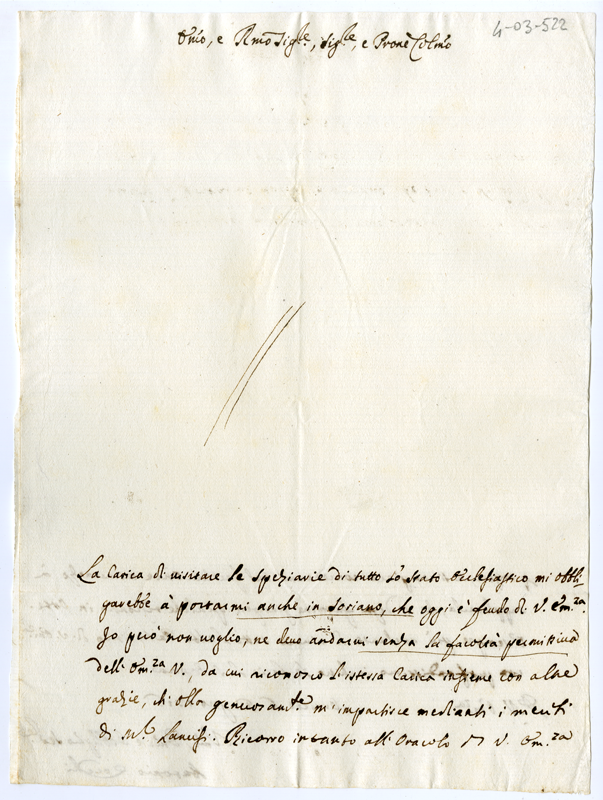 4-03-522
Em̃o, e Rmo Sig.re, Sig.re, e Prone Colmo
La Carica di visitare le Speziarie di tutto lo Stato Ecclesiastico mi obbli
garebbe à portarmi anche in Soriano, che oggi è feudo di V. Em.za.
Io però non voglio, ne devo andarvi senza la facoltà permissiva
dell' Em.za V., da cui riconosco l'istessa Carica insieme con altre
grazie, ch' ella generosam.te m'impartisce medianti i meriti
di M.r Lancisi. Ricorro intanto all' Oracolo di V. Em.za